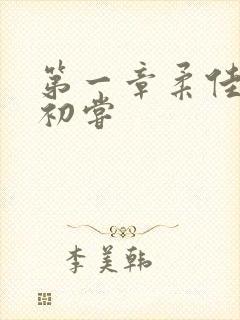 第一章柔佳
初尝
李美韩